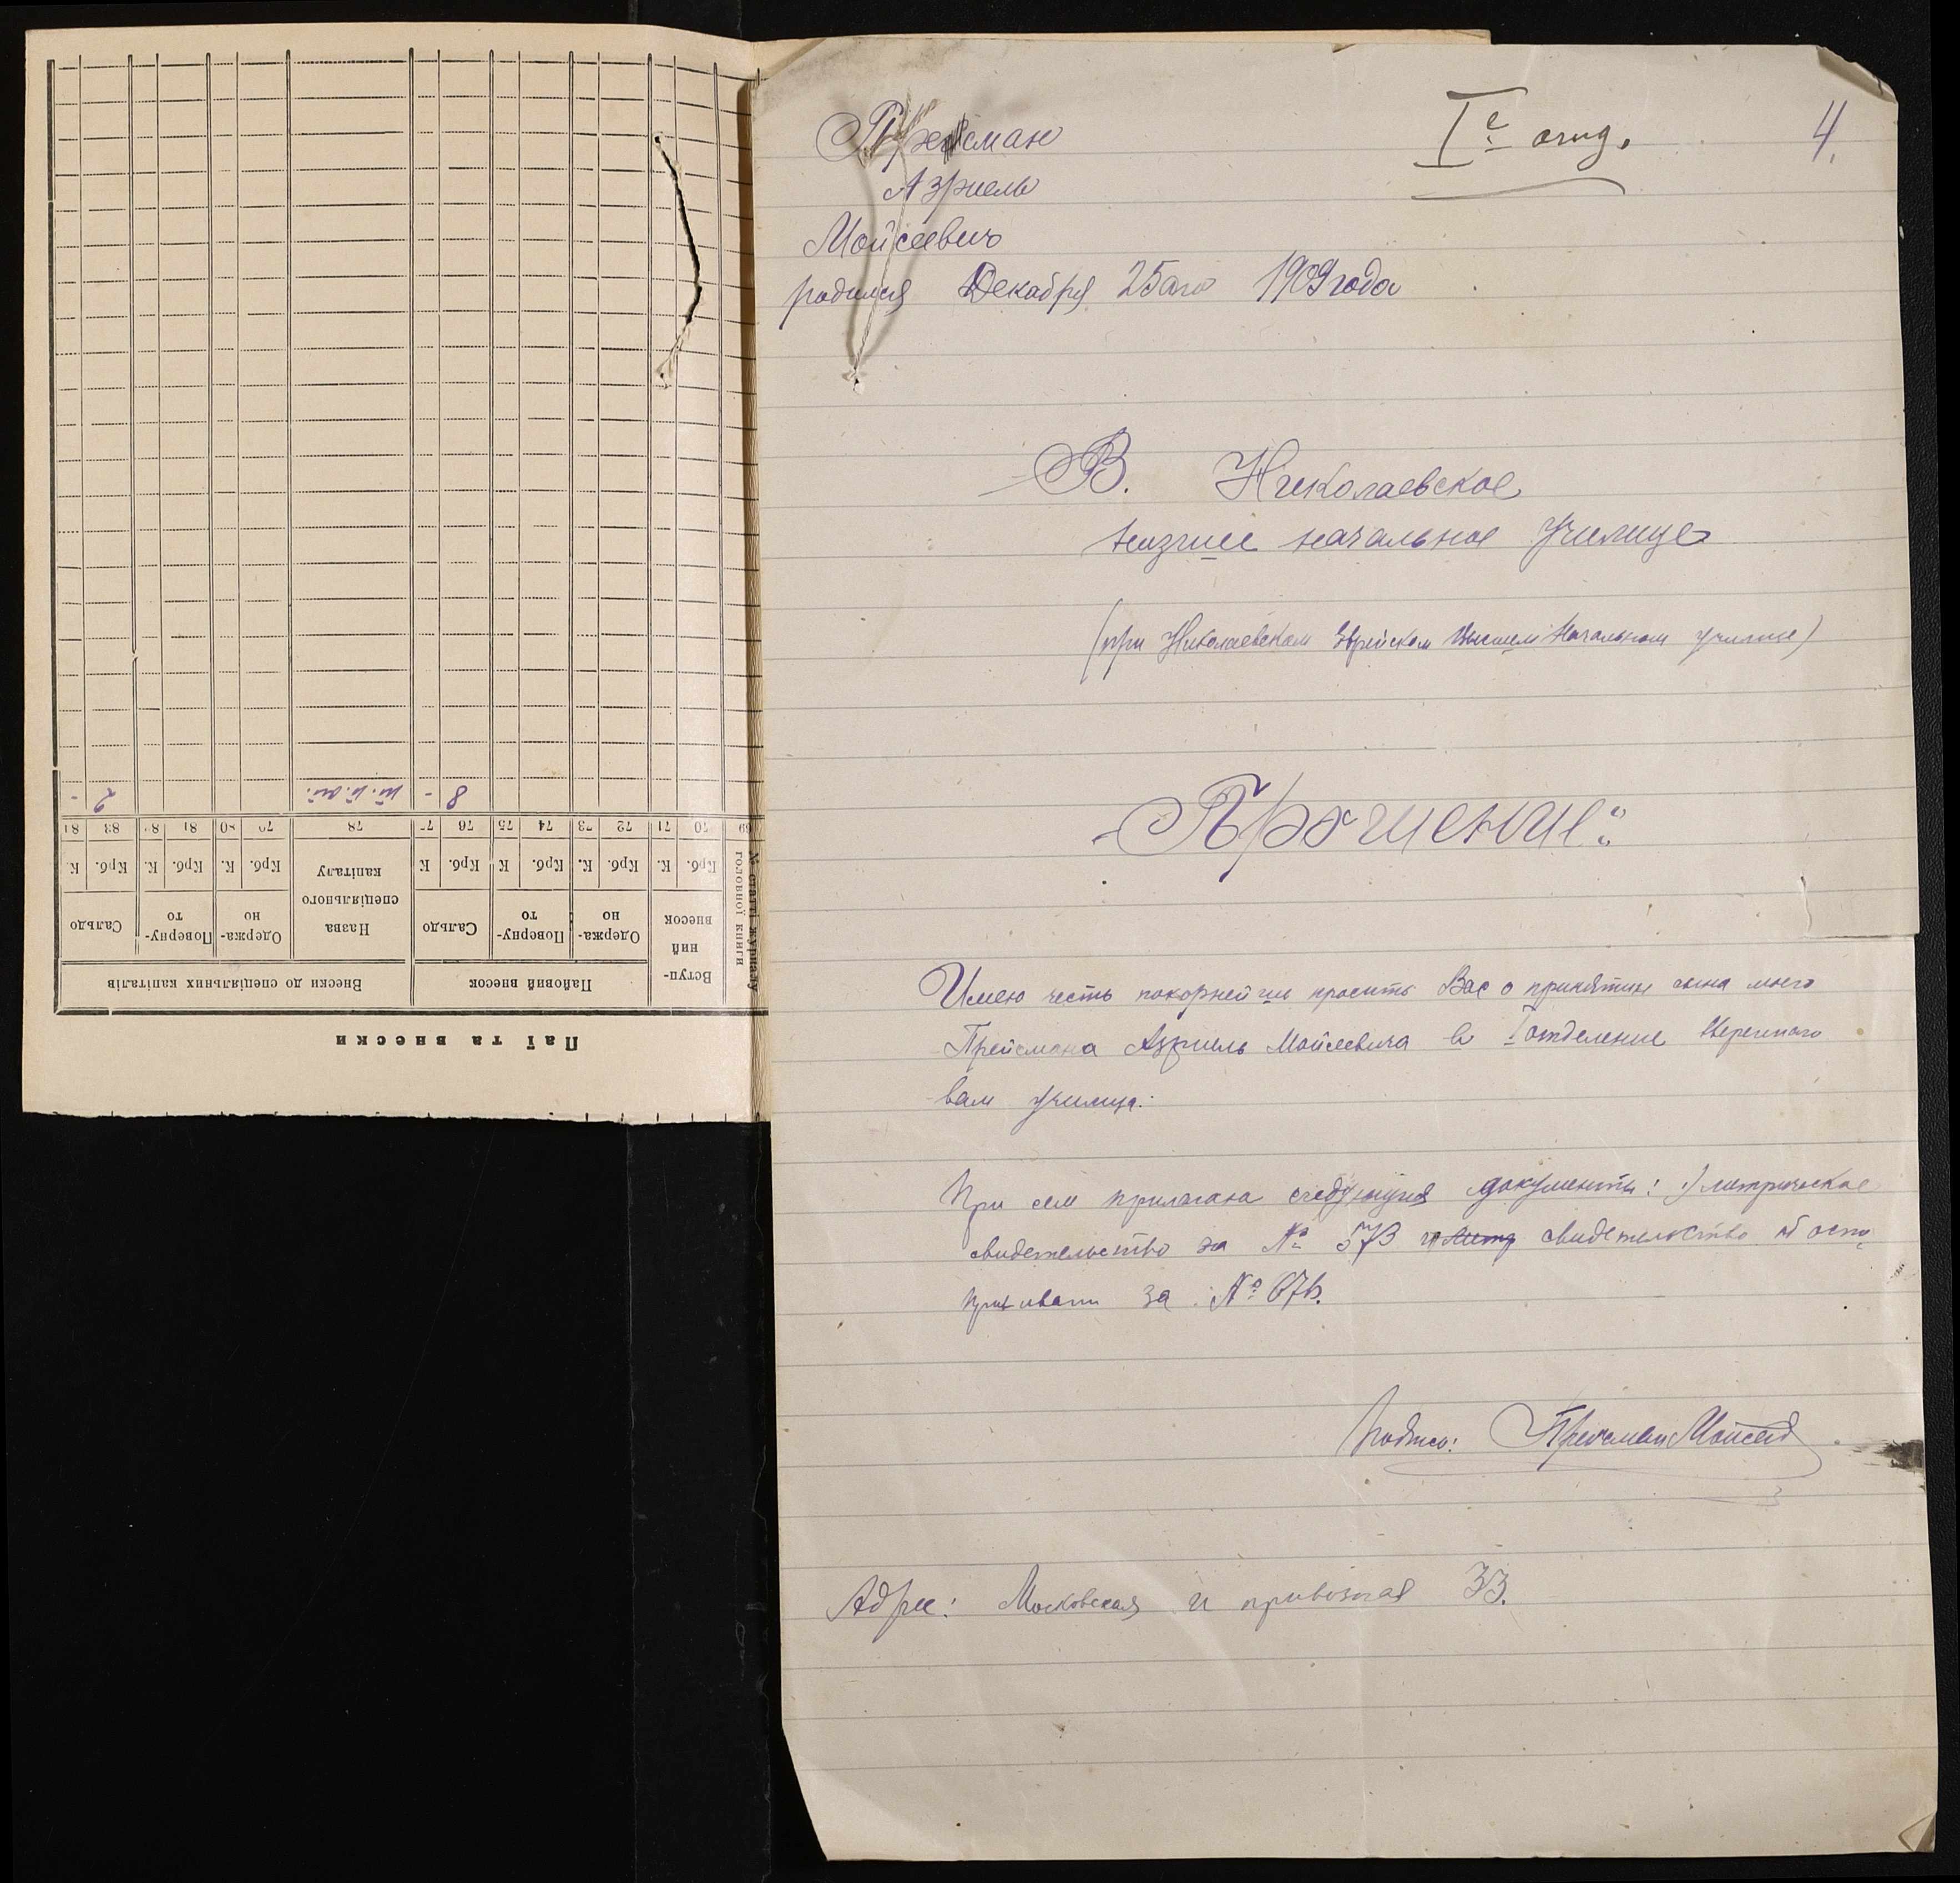 Паї та внески
Вступний внесок
Пайовий внесок
Внески до спеціяльних капіталів
№ статті журналу головної книги
Одержано
Повернуто
Сальдо
Назва спеціяльного капіталу
Одержано
Повернуто
Сальдо
Крб. К. Крб. К. Крб. К Крб. К Крб. К. Крб. К. Крб. К
69 70 71 72 73 74 75 76 77 78 79 80 81 82 83 84
8 - 2 -
Iе отд.
4.
Прейсман
Азриель
Мойсеевич
родился Декабря 25ого 1909 года
В. Николаевское
низшее начальное училище
(при Николаевском Еврейском Высшем Начальном училище)
Прошение:
Имею честь покорнейше просить Вас о принятии сына моего
Прейсмана Азриель Мойсеевича в I отделение Вереного
вам училища:
При сем прилагаю следующия документы: 1) метрическое
свидетельство за № 573 свидетельство об оспо-
прививании за № 676.
Прейсман Мойсей
Адрес: Московская и привозная 33.